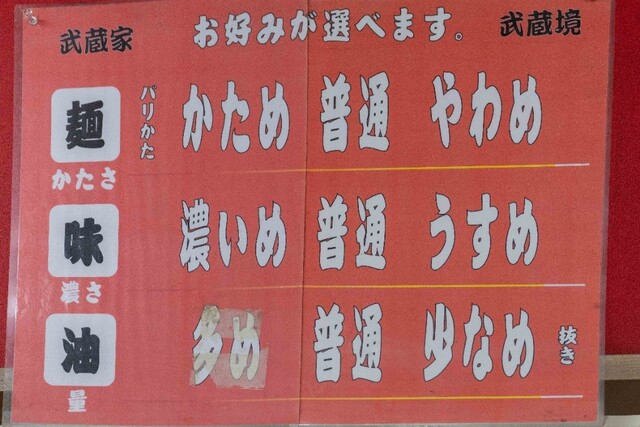 武蔵家 お好みが選べます。 武蔵境
麺 かたさ バリかた かため 普通 やわめ
味 濃さ 濃いめ 普通 うすめ
油 量 多め 普通 少なめ 抜き